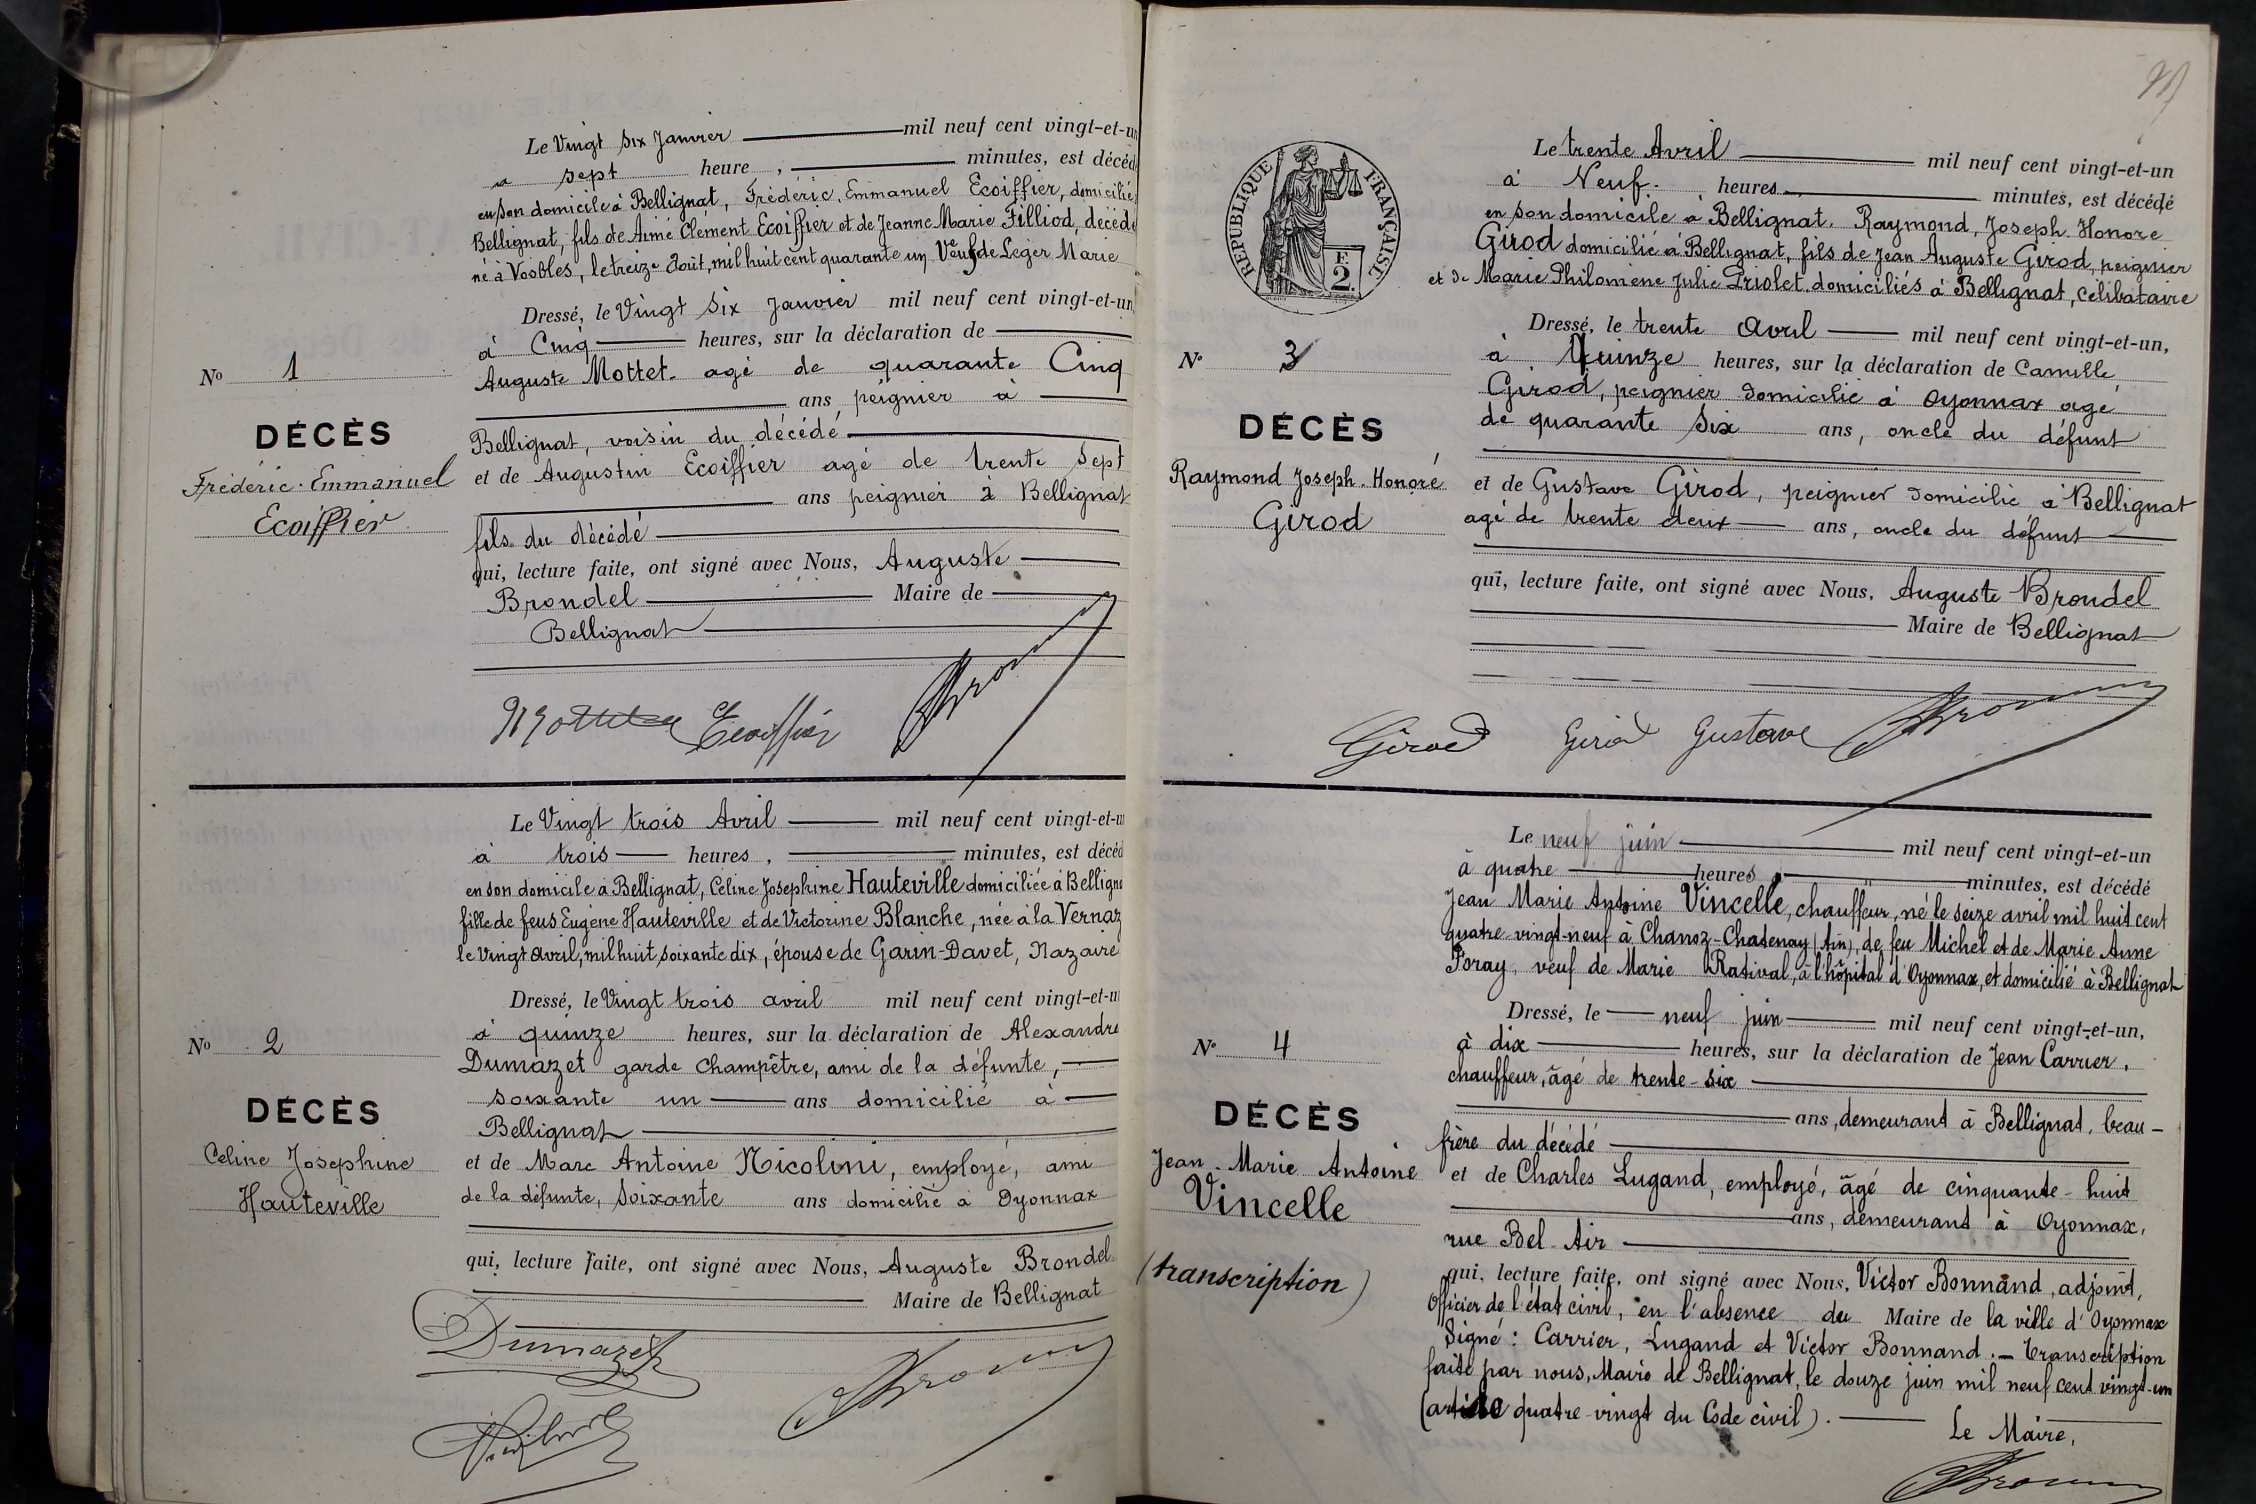 Le Vingt six Janvier mil neuf cent vingt-et-un
à sept heure , minutes, est décédé
en son domicile à Bellignat, Frédéric, Emmanuel Ecoiffier, domicilié
Bellignat, fils de Aimé Clément Ecoiffier et de Jeanne Marie Filliod, décédé
né à Vosbles, le treize Août, mil huit cent quarante un Veuf de Leger Marie
Dressé, le Vingt six Janvier mil neuf cent vingt-et-un,
à Cinq heures, sur la déclaration de
Auguste Mottet agé de quarante Cinq
ans peignier à
Bellignat, voisin du décédé
et de Augustin Ecoiffier agé de trente Sept
ans peignier à Bellignat
fils du décédé
qui, lecture faite, ont signé avec Nous, Auguste
Brondel Maire de
Bellignat
N° 1
DÉCÈS
Frédéric. Emmanuel
Ecoiffier
Ecoiffier
Le Vingt trois Avril mil neuf cent vingt-et-u
à trois heures , minutes, est décéd
en son domicile à Bellignat, Celine Josephine Hauteville domiciliée à Belligna
fille de feus Eugène Hauteville et de Victorine Blanche, née à la Vernaz
le Vingt avril, mil huit soixante dix, épouse de Garin-Davet, Nazaire
Dressé, le Vingt trois avril mil neuf cent vingt-et-u
à quinze heures, sur la déclaration de Alexandre
Dumazet garde champêtre, ami de la défunte,
soixante un ans domicilié à
Bellignat
et de Marc Antoine Nicolini, employé, ami
de la défunte, soixante ans domicilié à Oyonnax
qui, lecture faite, ont signé avec Nous, Auguste Brondel
Maire de Bellignat
N° 2
DÉCÈS
Celine Josephine
Hauteville
Dumazet
RÉPUBLIQUE FRANÇAISE
F.
2.
Le trente Avril mil neuf cent vingt-et-un
à Neuf heures minutes, est décédé
en son domicile à Bellignat. Raymond, Joseph. Honore
Girod domicilié à Bellignat, fils de Jean Auguste Girod, peignier
et de Marie Philomène Julie Priolet domiciliés à Bellignat, Célibataire
Dressé, le trente Avril mil neuf cent vingt-et-un,
à Quinze heures, sur la déclaration de Camille
Girod, peignier domicilié à Oyonnax agé
de quarante six ans, oncle du défunt
et de Gustave Girod, peignier domicilié à Bellignat
agé de trente deux ans, oncle du défunt
qui, lecture faite, ont signé avec Nous, Auguste Brondel
Maire de Bellignat
N° 3
DÉCÈS
Raymond Joseph. Honoré
Girod
Girod Girod Gustave
Le neuf juin mil neuf cent vingt-et-un
à quatre heures , minutes, est décédé
Jean Marie Antoine Vincelle, chauffeur, né le seize avril mil huit cent
quatre-vingt-neuf à Chanoz-Chatenay (Ain), de feu Michel et de Marie Anne
Poray, veuf de Marie Ratival, à l'hôpital d'Oyonnax, et domicilié à Bellignat
Dressé, le neuf juin mil neuf cent vingt-et-un,
à dix heures, sur la déclaration de Jean Carrier,
chauffeur, âgé de trente-six
ans, demeurant à Bellignat, beau-
frère du décédé
et de Charles Lugand, employé, âgé de cinquante-huit
ans, demeurant à Oyonnax,
rue Bel-Air
qui, lecture faite, ont signé avec Nous, Victor Bonnand, adjoint,
Officier de l'état civil, en l'absence du Maire de la ville d'Oyonnax
Signé : Carrier, Lugand et Victor Bonnand. — Transcription
faite par nous, Maire de Bellignat, le douze juin mil neuf cent vingt-un
(article quatre-vingt du Code civil).
Le Maire,
N° 4
DÉCÈS
Jean-Marie Antoine
Vincelle
(transcription)